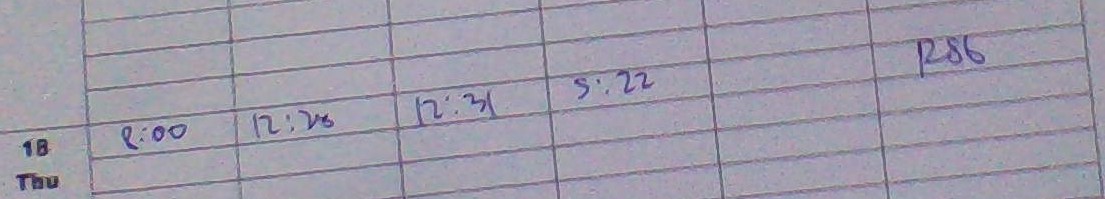 18 8:00 12:28 12:31 5:22 1286
Thu